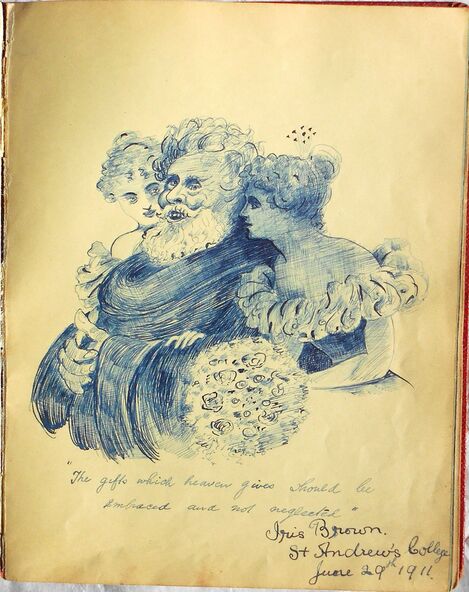 "The gifts which heaven gives should be
embraced and not neglected"
Iris Brown.
St Andrew's College
June 29th 1911.